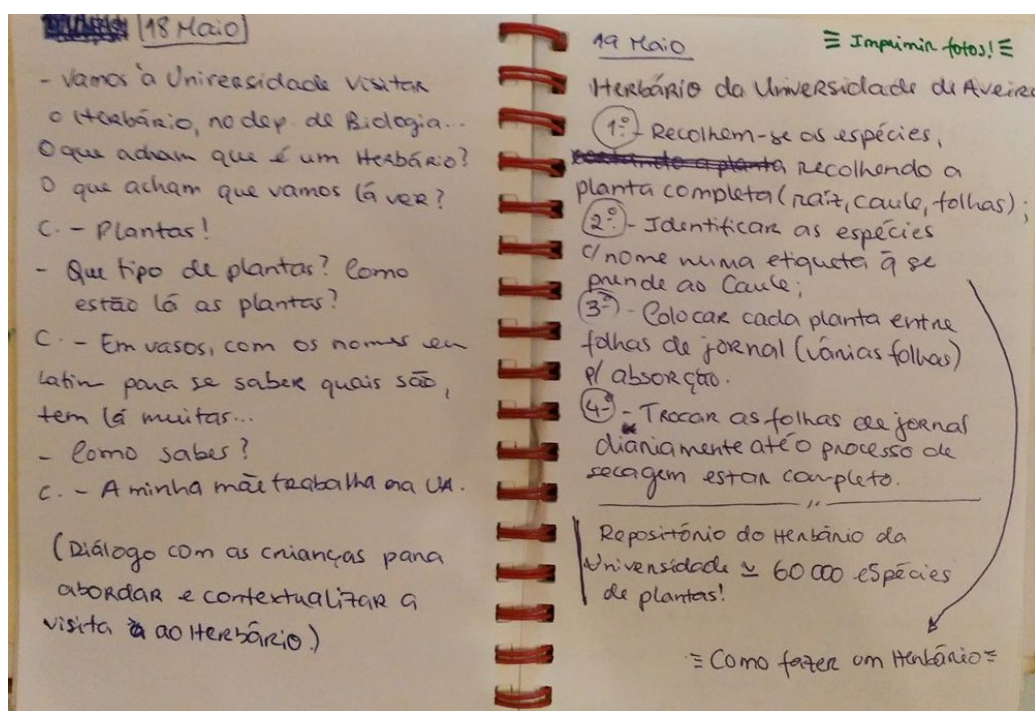 18 Maio
- Vamos à Universidade visitar
o Herbário, no dep. de Biologia...
O que acham que é um Herbário?
O que acham que vamos lá ver?
C. - Plantas!
- Que tipo de plantas? Como
estão lá as plantas?
C. - Em vasos, com os nomes em
latin para se saber quais são,
tem lá muitas...
- Como sabes?
C. - A minha mãe trabalha na UA.
(Diálogo com as crianças para
abordar e contextualizar a
visita ao Herbário.)
19 Maio
≡ Imprimir fotos! ≡
Herbário da Universidade de Aveiro
1º - Recolhem-se as espécies,
cortando a planta recolhendo a
planta completa (raíz, caule, folhas).
2º - Identificar as espécies
c/ nome numa etiqueta q̃ se
prende ao Caule;
3º - Colocar cada planta entre
folhas de jornal (várias folhas)
p/ absorção.
4º - Trocar as folhas de jornal
diáriamente até o processo de
secagem estar completo.
Repositório do Herbário da
Universidade ≃ 60 000 espécies
de plantas!
≡ Como fazer um Herbário ≡